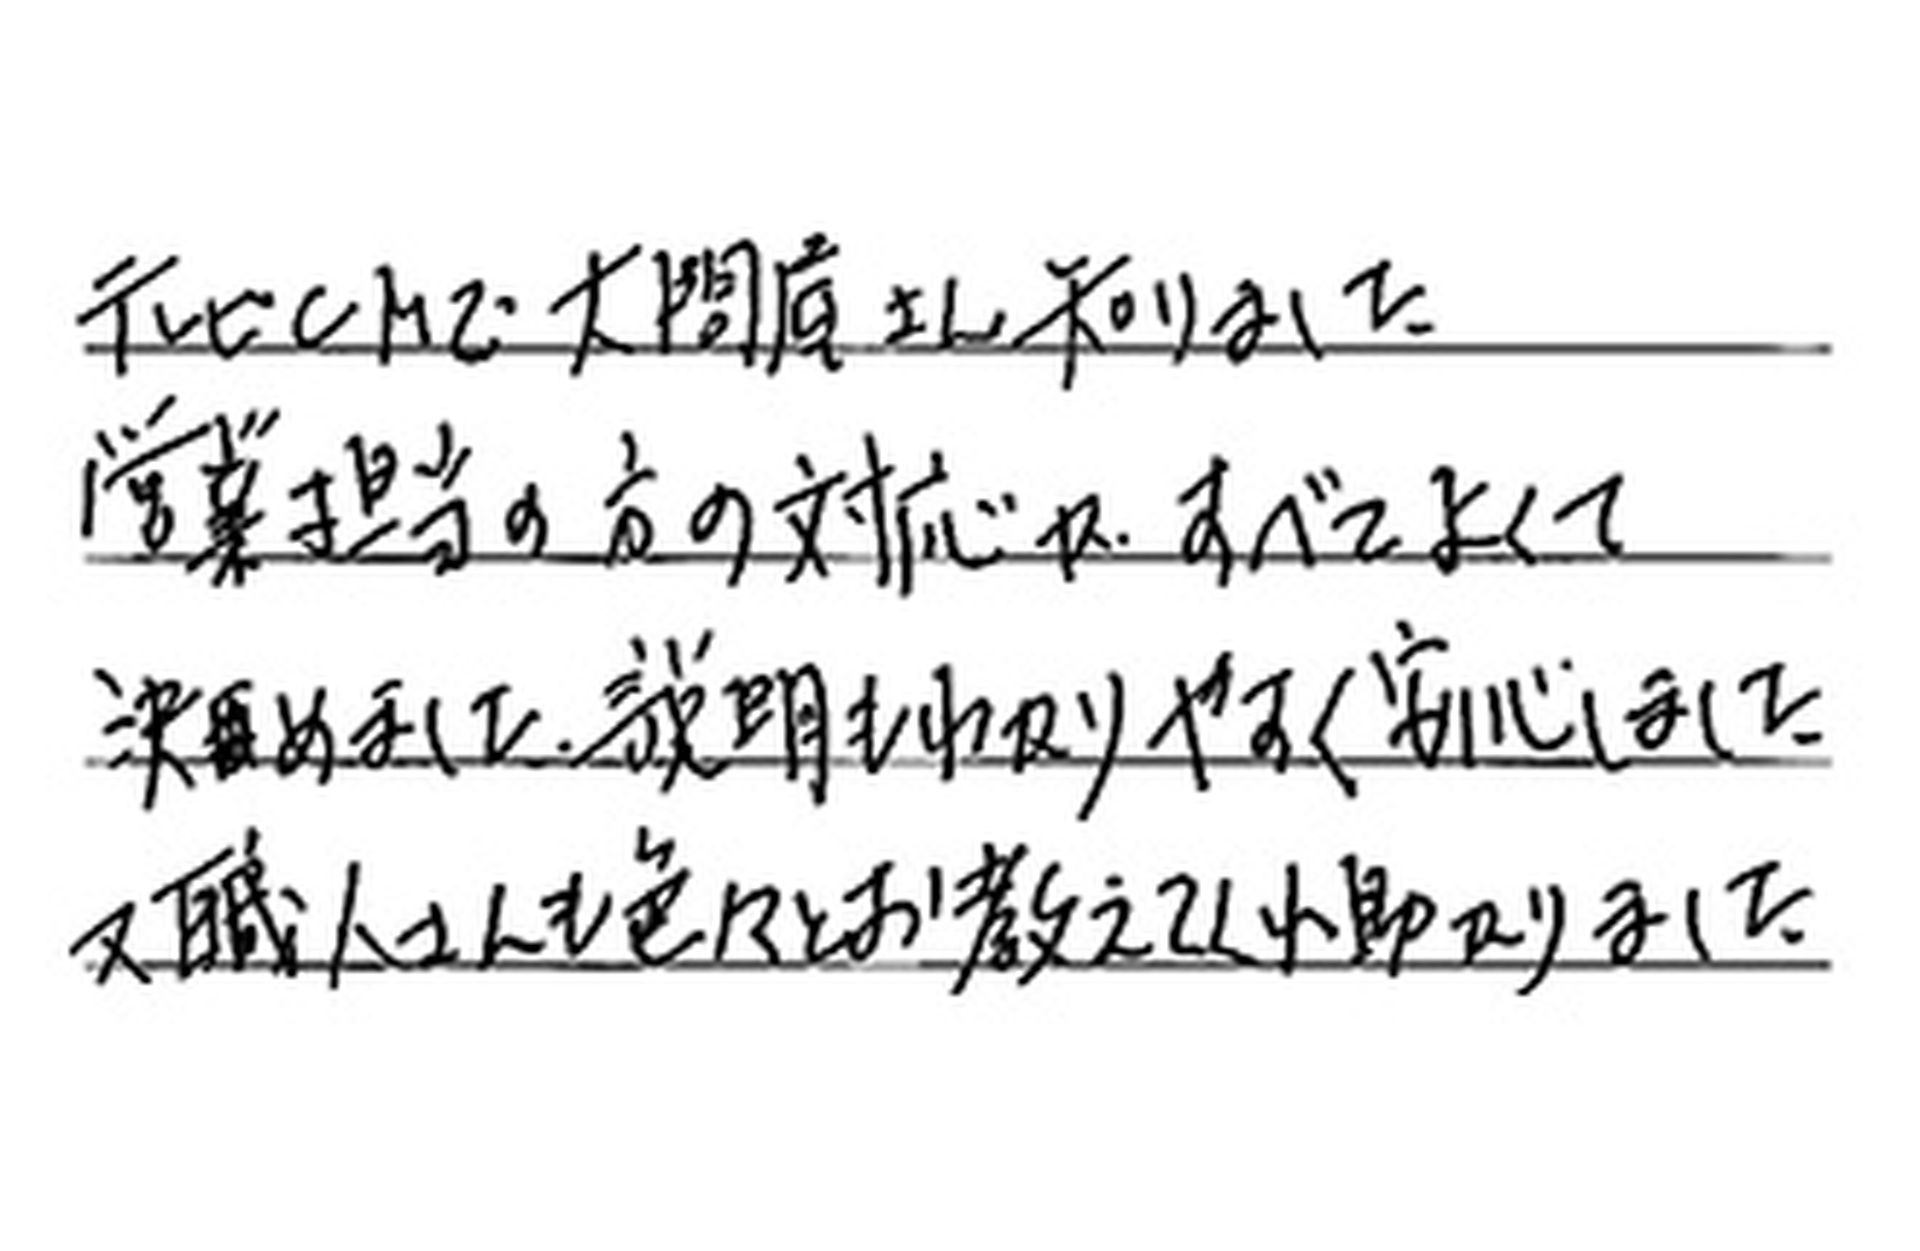 テレビCMで大問屋さん知りました
営業担当の方の対応や.すべてよくて
決めました.説明もわかりやすく安心しました
又職人さんも色々とお教えてくれ助かりました